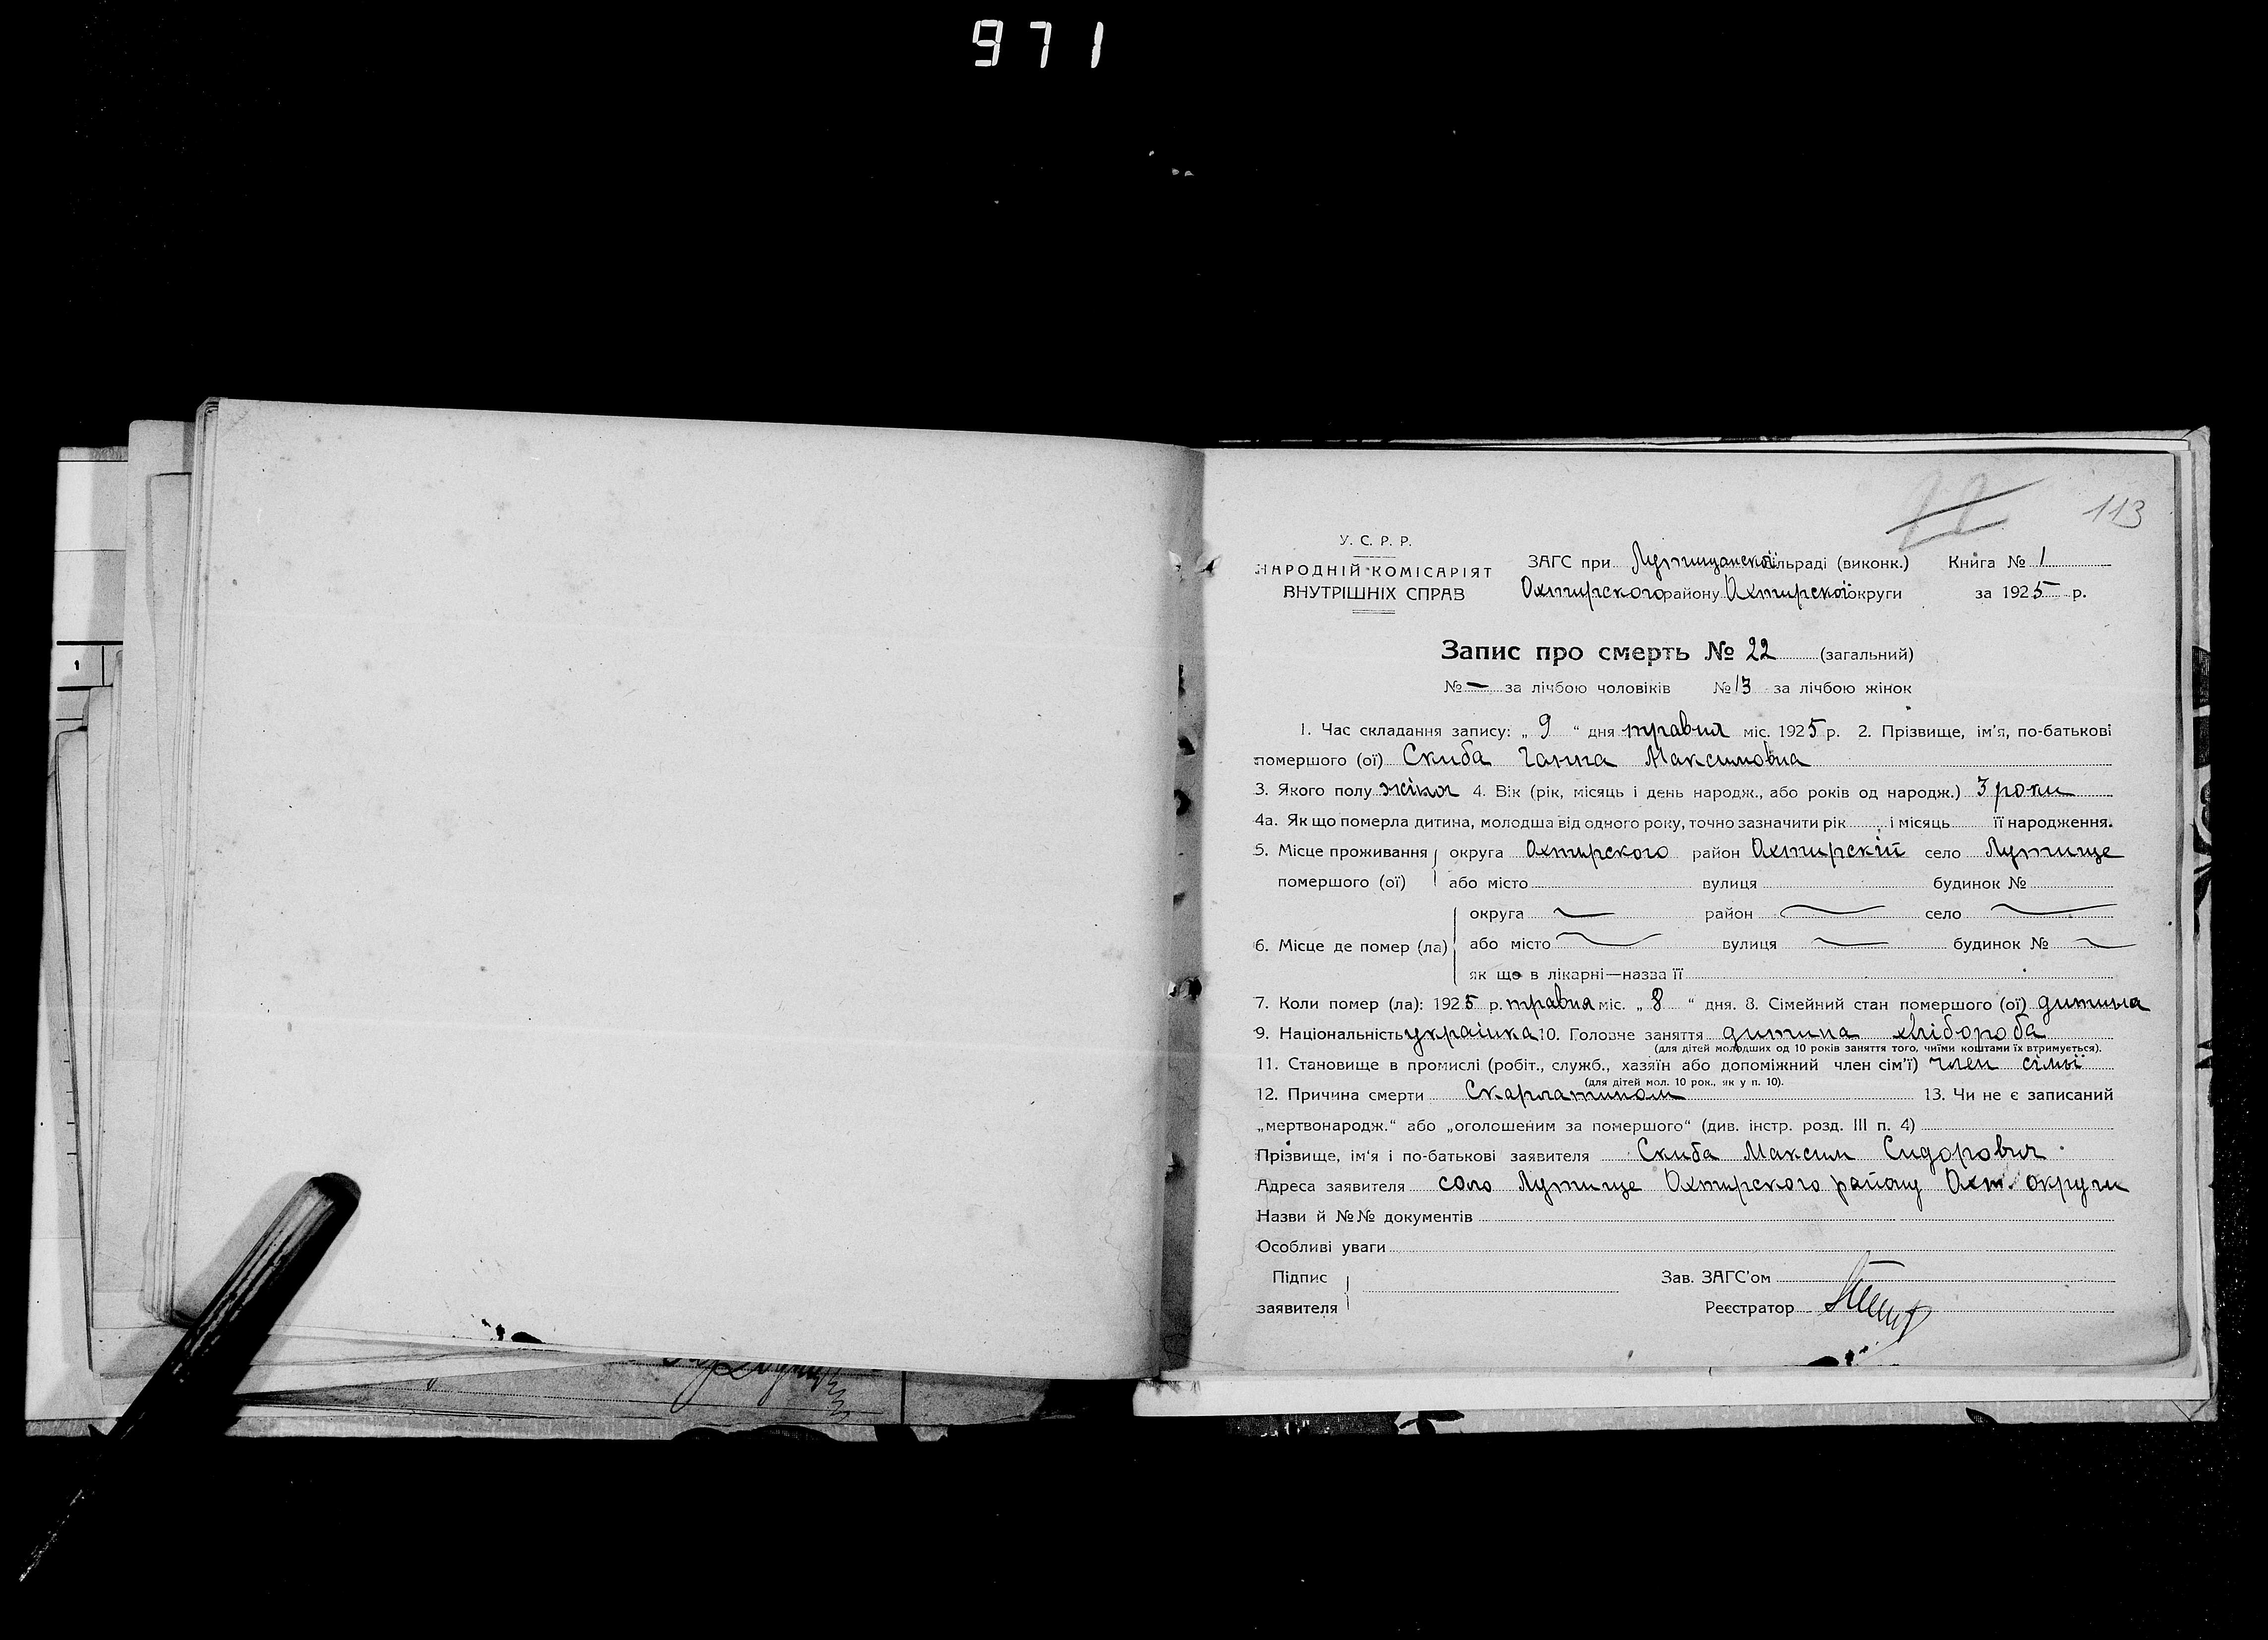 971
113
22
У. С. Р. Р.
НАРОДНІЙ КОМІСАРІЯТ
ВНУТРІШНІХ СПРАВ
ЗАГС при Лутищанской сільраді (виконк.) Книга № 1
Охтирского району Охтирскої округи за 1925 р.
Запис про смерть № 22 (загальний)
№ — за лічбою чоловіків № 13 за лічбою жінок
1. Час складання запису: „ 9 “ дня травня міс. 1925 р. 2. Прізвище, ім'я, по-батькові
помершого (ої) Скиба Ганна Максимовна
3. Якого полу жіноч 4. Вік (рік, місяць і день народж., або років од народж.) 3 роки
4а. Як що померла дитина, молодша від одного року, точно зазначити рік і місяць її народження.
5. Місце проживання округа Охтирского район Охтирскій село Лутище
помершого (ої) або місто вулиця будинок №
округа — район — село —
6. Місце де помер (ла) або місто — вулиця — будинок № —
як що в лікарні—назва її
7. Коли помер (ла): 1925 р. травня міс. „ 8 “ дня. 8. Сімейний стан помершого (ої) дитина
9. Національність українка 10. Головне заняття дитина хлібороба
(для дітей молодших од 10 років заняття того, чиїми коштами їх втримується).
11. Становище в промислі (робіт., служб., хазяїн або допоміжний член сім'ї) член сімьї
(для дітей мол. 10 рок., як у п. 10).
12. Причина смерти Скарлатином 13. Чи не є записаний
„мертвонародж.“ або „оголошеним за помершого“ (див. інстр. розд. III п. 4)
Прізвище, ім'я і по-батькові заявителя Скиба Максим Сидорович
Адреса заявителя село Лутище Охтирского району Охт. округи
Назви й №№ документів
Особливі уваги
Підпис
заявителя
Зав. ЗАГС'ом
Реєстратор